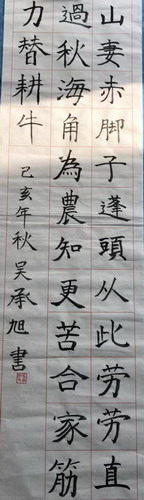 山妻赤脚子蓬頭从此劳劳直
過秋海角為農知更苦合家筋
力替耕牛
己亥年秋吴承旭書